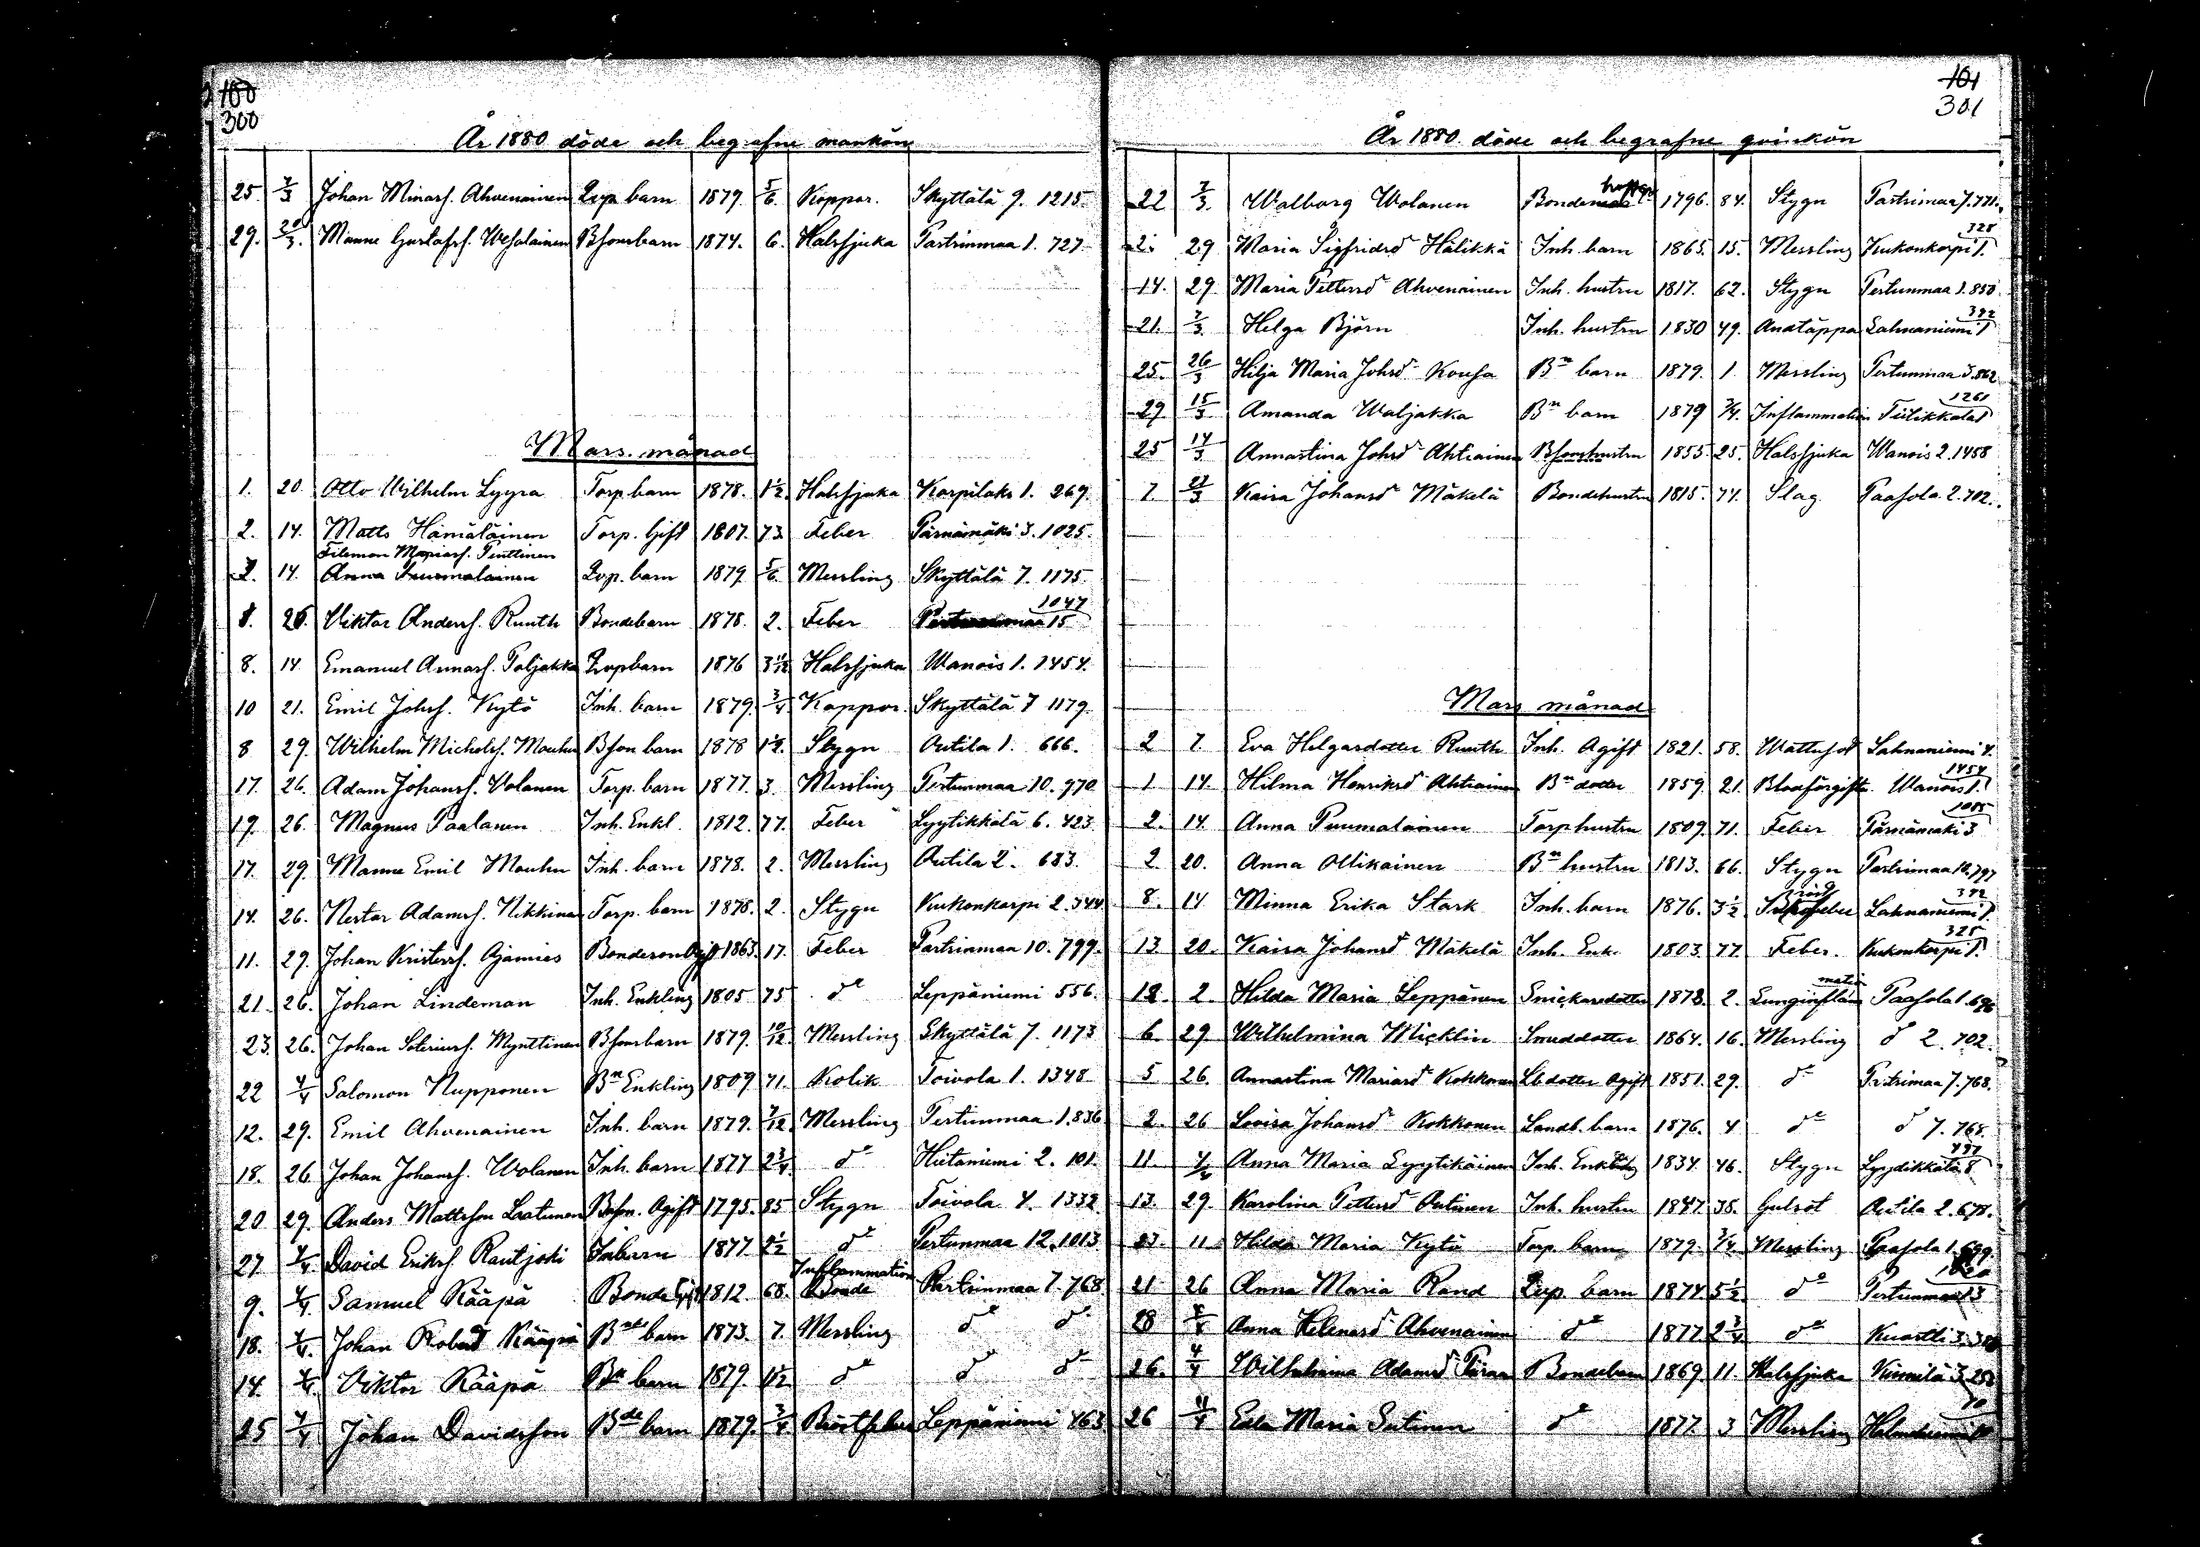 100
300
År 1880 döde och begrafne mankön
25. 7/3 Johan Minasf. Ahvenainen barn 1879 5/6. Koppor. Skyttälä 9. 1215.
29. 28/3. Manne Gustafsf. Wesalainen Bsonsbarn 1874. 6. Halssjuka Partrinmaa 1. 727.
Mars. månad
1. 20 Otto Wilhelm Lyyra Torp. barn 1878. 1 1/2. Halssjuka Karpilaks 1. 269.
2. 14. Matts Hämäläinen Torp. Gift 1807. 73. Feber Pärnämäki 3. 1025.
Filemon Mariasf. Penttinen
2. 14. barn 1879 5/6. Messling Skyttälä 7. 1175.
8. 26. Viktor Andersf. Ruuth Bondebarn 1878. 2. Feber 15 1047
8. 14 Emanuel Annasf. Paljakka barn 1876 3 11/12 Halssjuka Wanois 1. 1454.
10 21. Emil Johsf. Kytö Inh. barn 1879. 3/4 Koppor. Skyttälä 7 1179.
8 29. Wilhelm Michelsf. Mouhu Bson barn 1878 1 1/2. Stygn Autila 1. 666.
17. 26. Adam Johansf. Wolanen Torp. barn 1877. 3. Messling Pertunmaa 10. 970
19. 26. Magnus Paalanen Inh. Enkl. 1812. 77. Feber Lyytikkälä 6. 423
17. 29. Manne Emil Mouhu Inh. barn 1878. 2. Messling Autila 2. 683.
14. 26. Nestor Adamsf. Nikkinen Torp. barn 1878. 2. Stygn Kukonkorpi 2. 344
11. 29. Johan Kristersf. Ojamies Bondeson Ogift 1863. 17. Feber Partrinmaa 10. 799.
21. 26. Johan Lindeman Inh. Enkling 1805 75 do Leppäniemi 556.
23. 26. Johan Mynttinen Bsonsbarn 1879. 10/12 Messling Skyttälä 7. 1173
22 4/4 Salomon Nupponen Bn Enkling 1809 71. Kolik Toivola 1. 1348
12. 29. Emil Ahvenainen Inh. barn 1879. 7/12 Messling Pertunmaa 1. 836
18. 26 Johan Johansf. Wolanen Inh. barn 1877 2 3/4. do Hietaniemi 2. 101.
20 29. Anders Mattsson Laatunen Bson. Ogift 1795. 85 Stygn Toivola 4. 1332
27 4/4 David Eriksf. Rautjoki Inh. barn 1877. 2 1/2 do Pertunmaa 12. 1013
9. 4/4 Samuel Rääpä Bonde Gift 1812. 68. Inflammation Partrinmaa 7. 768
18. 4/4. Johan Robert Rääpä barn 1873. 7. Messling do do
14. 4/4. Viktor Rääpä Bn barn 1879. 1 1/2. do do do
25 4/4 Johan Davidsson Bde barn 1879. 3/4 Bröstfeber Leppäniemi 463
101
301
År 1880. döde och begrafne qvinkön
22 7/3. Walborg Wolanen Bonde 1796. 84. Stygn Partrimaa 7. 771.
2. 29 Maria Sigfridsdr Hälikkä Inh. barn 1865. 15. Messling Kukonkorpi 1. 328
14. 29. Maria Pettersdr Ahvenainen Inh. hustru 1817. 62. Stygn Pertunmaa 1. 850
21. 7/3. Helga Björn Inh. hustru 1830 49. Andtäppa Lahnaniemi 1 392
25. 26/3 Hilja Maria Johsdr Kousa Bn barn 1879. 1 Messling Pertunmaa 3. 862
29 15/3 Amanda Waljakka Bn barn 1879 3/4. Inflammation Tiilikkala 1 1261
25 14/3 Annastina Johsdr Ahtiainen Bsonshustru 1855. 25. Halssjuka Wanois 2. 1458
7. 21/3 Kaisa Johansdr Mäkelä Bondehustru 1815. 74. Slag Paasola. 2. 702.
Mars månad
2 7. Eva Helgasdotter Ruuth Inh. Ogift 1821. 58. Wattusot Lahnaniemi 4.
1 14. Hilma Henriksdr Ahtiainen Bn dotter 1859. 21. Blodförgiftn. Wanois 1. 1454
2. 14. Anna Puumalainen Torphustru 1809. 71. Feber Pärnämäki 3
2 20. Anna Ollikainen Bn hustru 1813. 66. Stygn Partrimaa 10. 797
8. 14 Minna Erika Stark Inh. barn 1876. 3 1/2 Lahnaniemi 1. 392
13. 20. Kaisa Johansdr Mäkelä Inh. Enk. 1803. 77. Feber. Kukonkorpi 1. 325
12. 2. Hilda Maria Leppänen Snickaredotter 1878. 2. Lunginflammation Paasola 1. 696
6. 29 Wilhelmina Micklin Smeddotter 1864. 16. Messling do 2. 702.
5 26. Annastina Mariasdr Kokkonen Lb dotter ogift 1851. 29. do Partrimaa 7. 768.
2. 26 Lovisa Johansdr Kokkonen Landb. barn 1876. 4 do do 7. 768.
11. Anna Maria Lyytikäinen Inh. 1834. 46. Stygn Lyydikkälä 8 437
13. 29. Karolina Pettersdr Autinen Inh. hustru 1847. 35. Gulsot Autila 2. 678.
23. 11 Hilda Maria Kytö Torp. barn 1879. 3/4 Messling Paasola 1. 699.
21 26 Anna Maria Rand barn 1874 5 1/2 do Pertunmaa 13
28 Anna Helenasdr Ahvenainen do 1877 2 3/4 do Kuortti 3.
26. 4/4 Wilhelmina Adamsdr Bondebarn 1869 11. Halssjuka Kinnilä 3. 253
26 4/4 Maria do 1877. 3 Messling 70